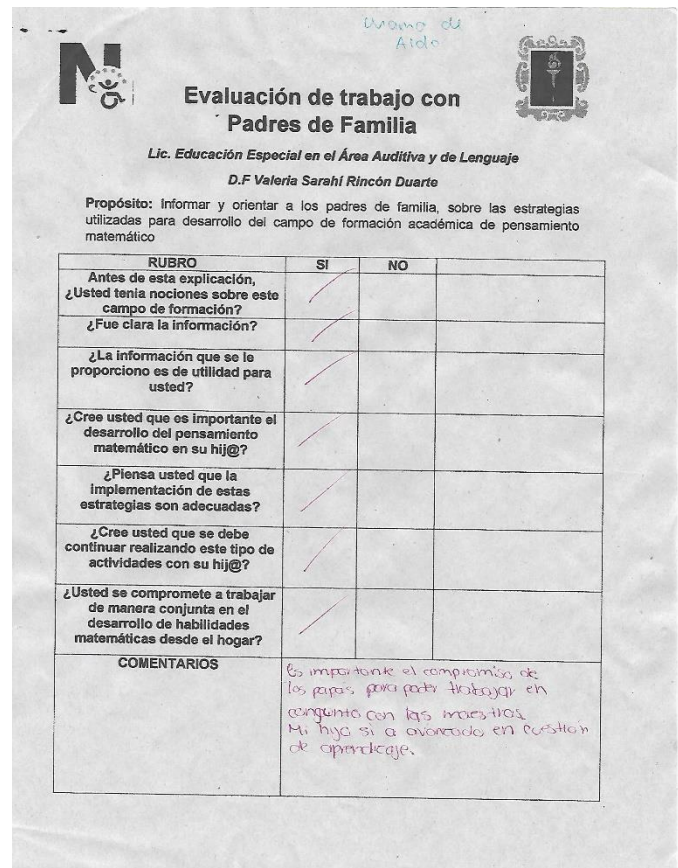 Mama de
Aldo
N
Evaluación de trabajo con
Padres de Familia
Lic. Educación Especial en el Área Auditiva y de Lenguaje
D.F Valeria Sarahí Rincón Duarte
Propósito: Informar y orientar a los padres de familia, sobre las estrategias
utilizadas para desarrollo del campo de formación académica de pensamiento
matemático
RUBRO SI NO
Antes de esta explicación,
¿Usted tenia nociones sobre este
campo de formación?
¿Fue clara la información?
¿La información que se le
proporciono es de utilidad para
usted?
¿Cree usted que es importante el
desarrollo del pensamiento
matemático en su hij@?
¿Piensa usted que la
implementación de estas
estrategias son adecuadas?
¿Cree usted que se debe
continuar realizando este tipo de
actividades con su hij@?
¿Usted se compromete a trabajar
de manera conjunta en el
desarrollo de habilidades
matemáticas desde el hogar?
COMENTARIOS
Es importante el compromiso de
los papas para poder trabajar en
congunto con las maestras
Mi hijo si a avanzado en cuestion
de aprendizaje.